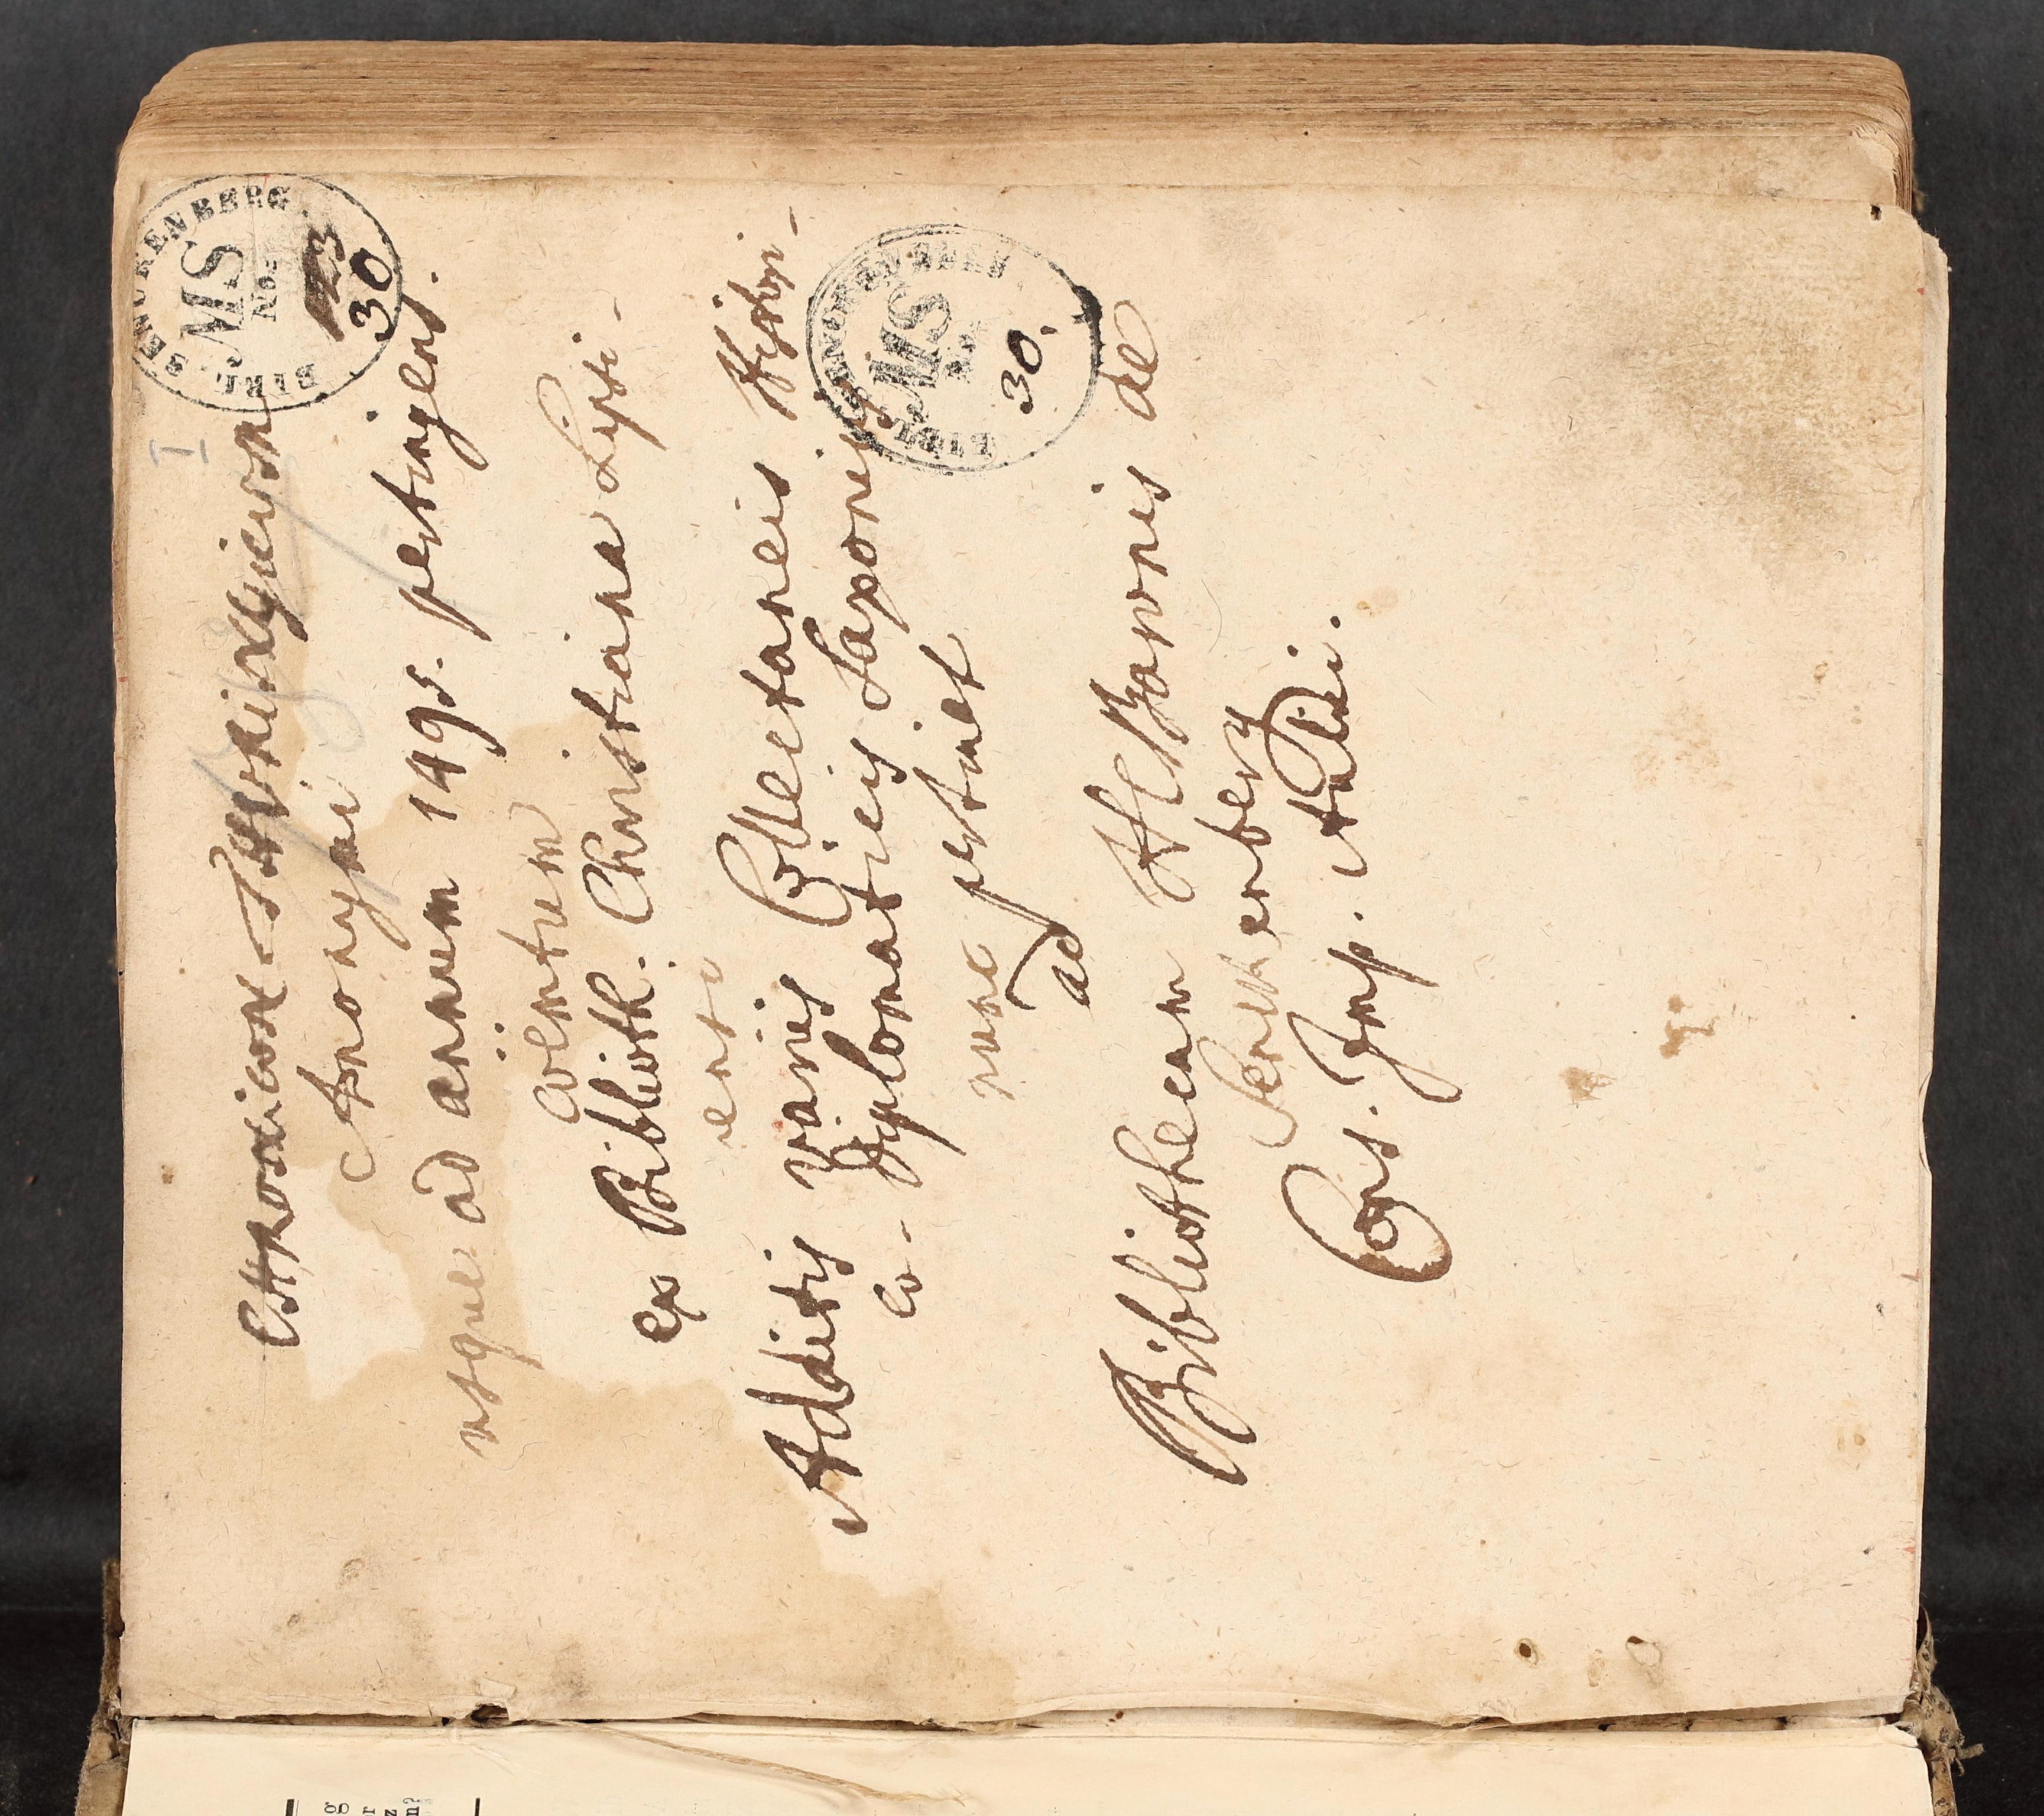 I
BIBL. SENCKENBERG
MS
No.
30
CHronicon THvringicvm
Anonymi
usque ad annum 1495. pertingens.
coëmtum
ex Biblioth. Christiana Lipsi-
ensi
Additis variis Collectaneis Histori-
co-Diplomaticis Saxonicis
nunc pertinet
ad
Bibliothecam H C Baronis de
Senckenberg
Cons. Imp. Aulici.
BIBL. SENCKENBERG
MS
30.